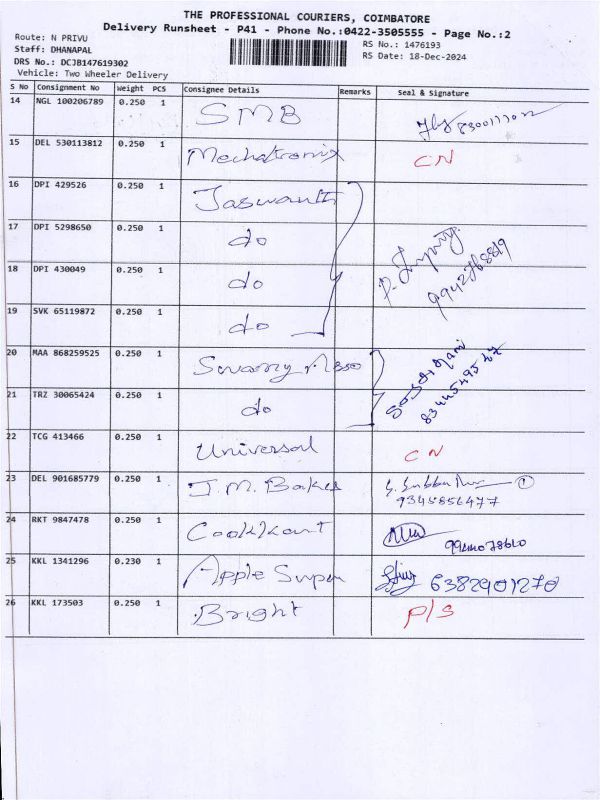 THE PROFESSIONAL COURIERS, COIMBATORE
Delivery Runsheet - P41 - Phone No.:0422-3505555 - Page No.:2
Route: N PRIVU
RS No.: 1476193
Staff: DHANAPAL
RS Date: 18-Dec-2024
DRS No.: DCJB147619302
Vehicle: Two Wheeler Delivery
S No Consignment No Weight PCS Consignee Details Remarks Seal & Signature
14 NGL 100206789 0.250 1 SMB
15 DEL 530113812 0.250 1 Mechatronix CN
16 DPI 429526 0.250 1 Jaswanth
17 DPI 5298650 0.250 1 do
18 DPI 430049 0.250 1 do 9942768819
19 SVK 65119872 0.250 1 do
20 MAA 868259525 0.250 1 Swamy Asso
21 TRZ 30065424 0.250 1 do
22 TCG 413466 0.250 1 Universal CN
23 DEL 901685779 0.250 1 J.M. Bakes 9345856477
24 RKT 9847478 0.250 1
25 KKL 1341296 0.230 1 Apple Super 6382901270
26 KKL 173503 0.250 1 Bright P/S